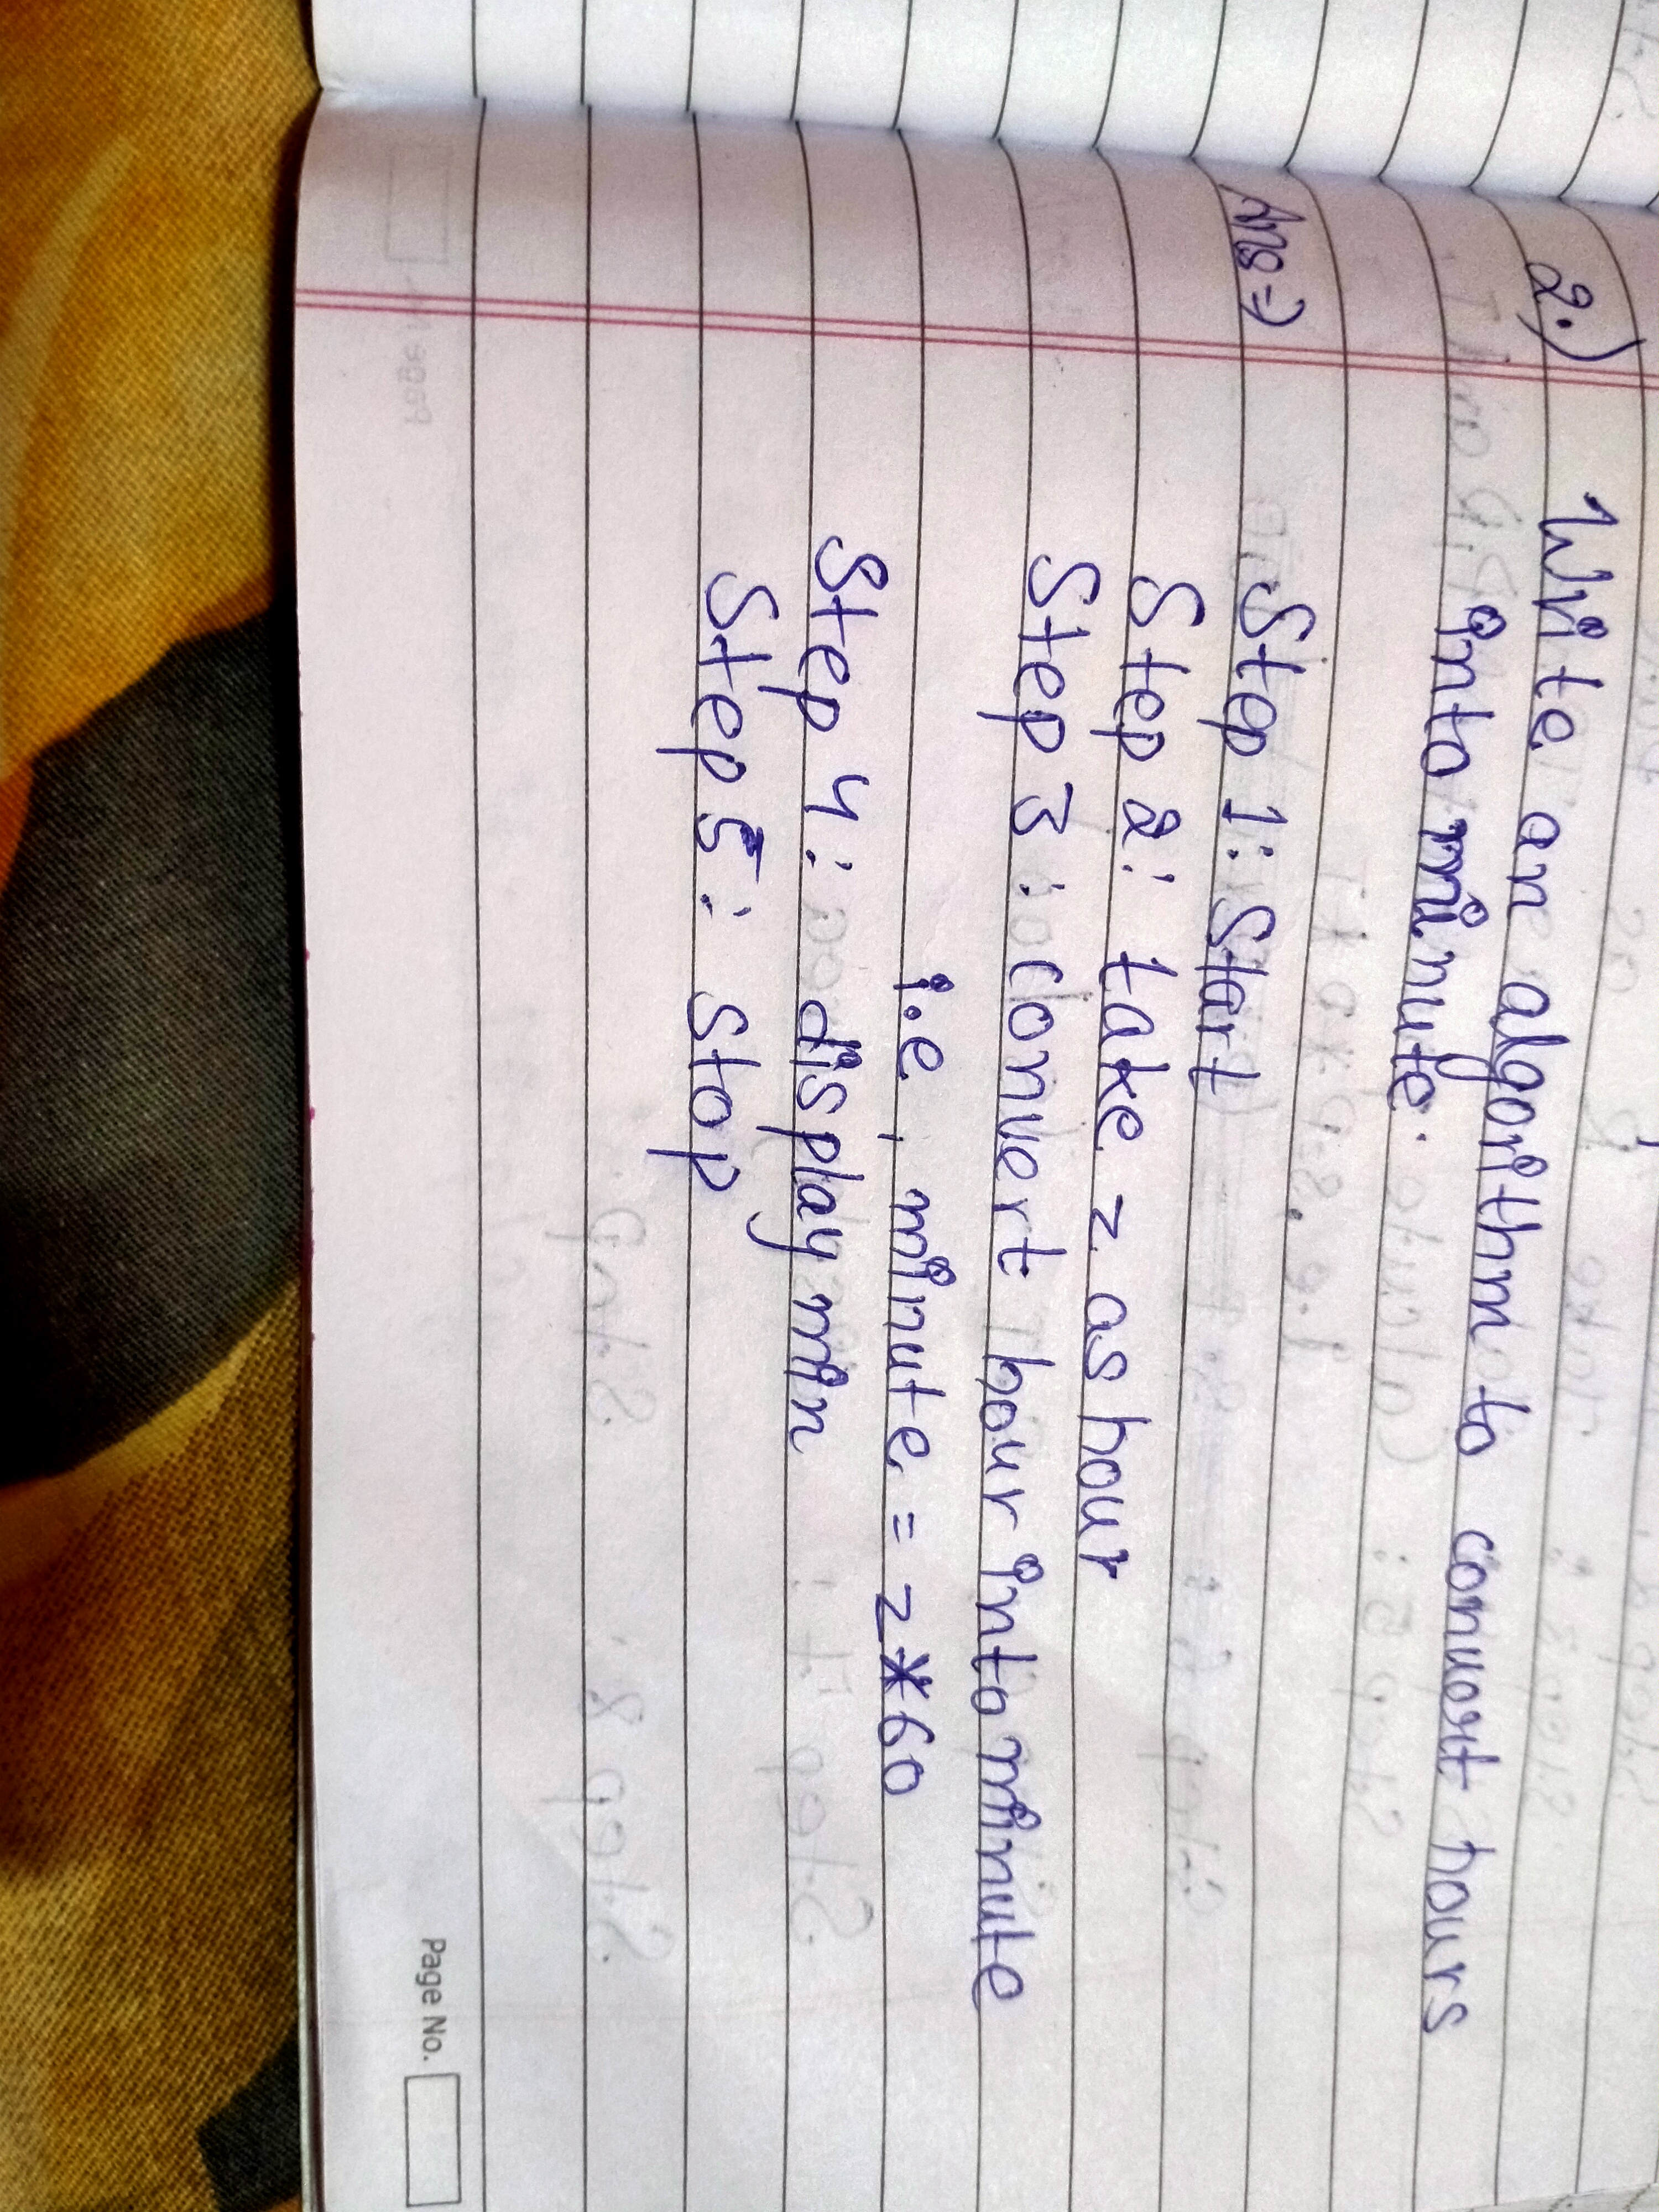 2.) Write an algorithm to convert hours
into minute.
Ans => Step 1: Start
Step 2: take z as hour
Step 3: Convert hour into minute
i.e, minute = z*60
Step 4: display min
Step 5: Stop
Page No.